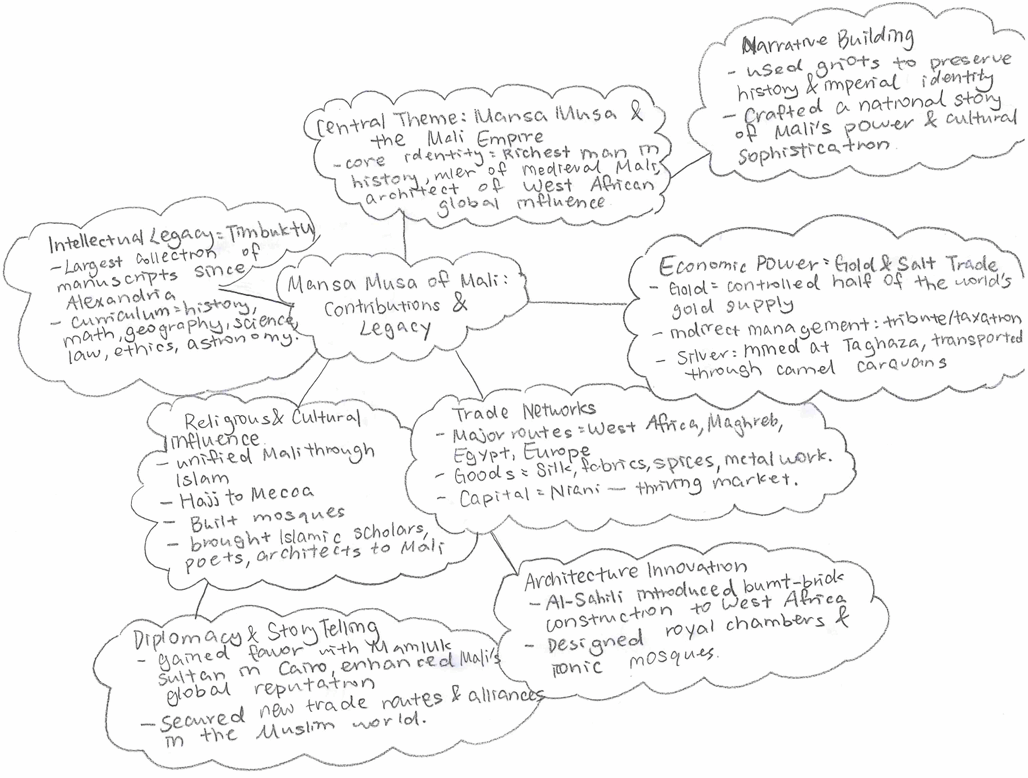 Narrative Building
- used griots to preserve
history & imperial identity
- Crafted a national story
of Mali's power & cultural
sophistication.
Central Theme: Mansa Musa &
the Mali Empire
- core identity = Richest man in
history, ruler of medieval Mali,
architect of West African
global influence
Intellectual Legacy = Timbuktu
- Largest collection of
manuscripts since
Alexandria
- curriculum = history,
math, geography, science,
law, ethics, astronomy.
Mansa Musa of Mali:
Contributions &
Legacy
Economic Power = Gold & Salt Trade
- Gold = controlled half of the world's
gold supply
- indirect management: tribute/taxation
- Silver: mined at Taghaza, transported
through camel caravans
Religious & Cultural
Influence
- unified Mali through
Islam
- Hajj to Mecca
- Built mosques
- brought Islamic scholars,
poets, architects to Mali
Trade Networks
- Major routes = West Africa, Maghreb,
Egypt, Europe
- Goods = Silk, fabrics, spices, metal work.
- Capital = Niani — thriving market.
Architecture Innovation
- Al-Sahili introduced burnt-brick
construction to West Africa
- Designed royal chambers &
iconic mosques.
Diplomacy & StoryTelling
- gained favor with Mamluk
sultan in Cairo, enhanced Mali's
global reputation
- Secured new trade routes & alliances
in the Muslim world.